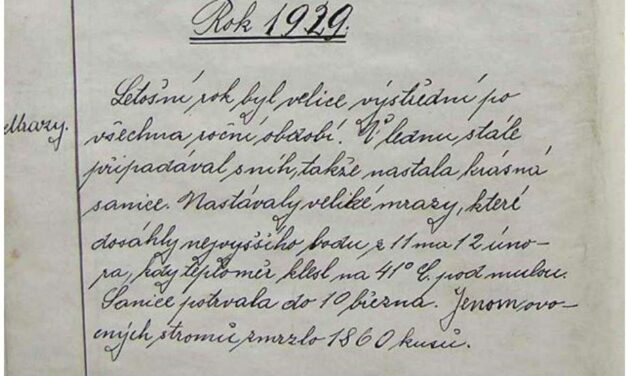 Rok 1929.
Mrazy.
Letošní rok byl velice výstřední po
všechna roční období. V lednu stále
připadával sníh, takže nastala krásná
sanice. Nastávaly veliké mrazy, které
dosáhly nejvyššího bodu z 11 na 12 úno-
ra, kdy teploměr klesl na 41° C. pod nulou.
Sanice potrvala do 10 března. Jenom ovo-
cných stromů zmrzlo 1860 kusů.